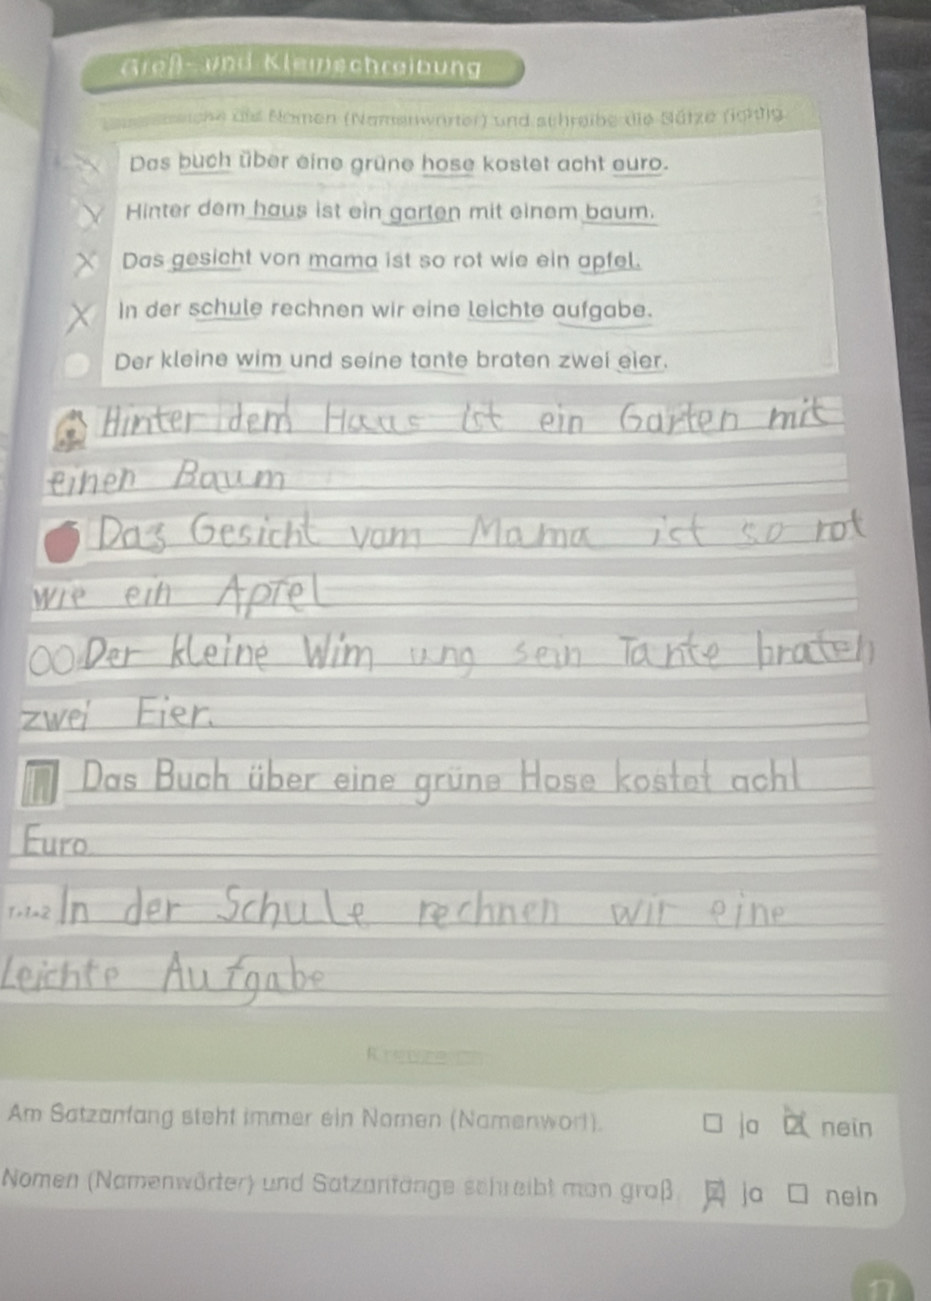 Groß- und Kleinschreibung
die Nomen (Namenwörter) und schreibe die Sätze richtig.
Das buch über eine grüne hose kostet acht euro.
Hinter dem haus ist ein garten mit einem baum.
Das gesicht von mama ist so rot wie ein apfel.
In der schule rechnen wir eine leichte aufgabe.
Der kleine wim und seine tante braten zwei eier.
Hinter dem Haus ist ein Garten mit
einen Baum
Das Gesicht vom Mama ist so rot
wie ein Apfel
Der kleine Wim ung sein Tante braten
zwei Eier.
Das Buch über eine grüne Hose kostet acht
Euro
1+1=2 In der Schule rechnen wir eine
Leichte Aufgabe
Kreuze an
Am Satzanfang steht immer ein Nomen (Namenwort). ja nein
Nomen (Namenwörter) und Satzanfänge schreibt man groß. ja nein
17